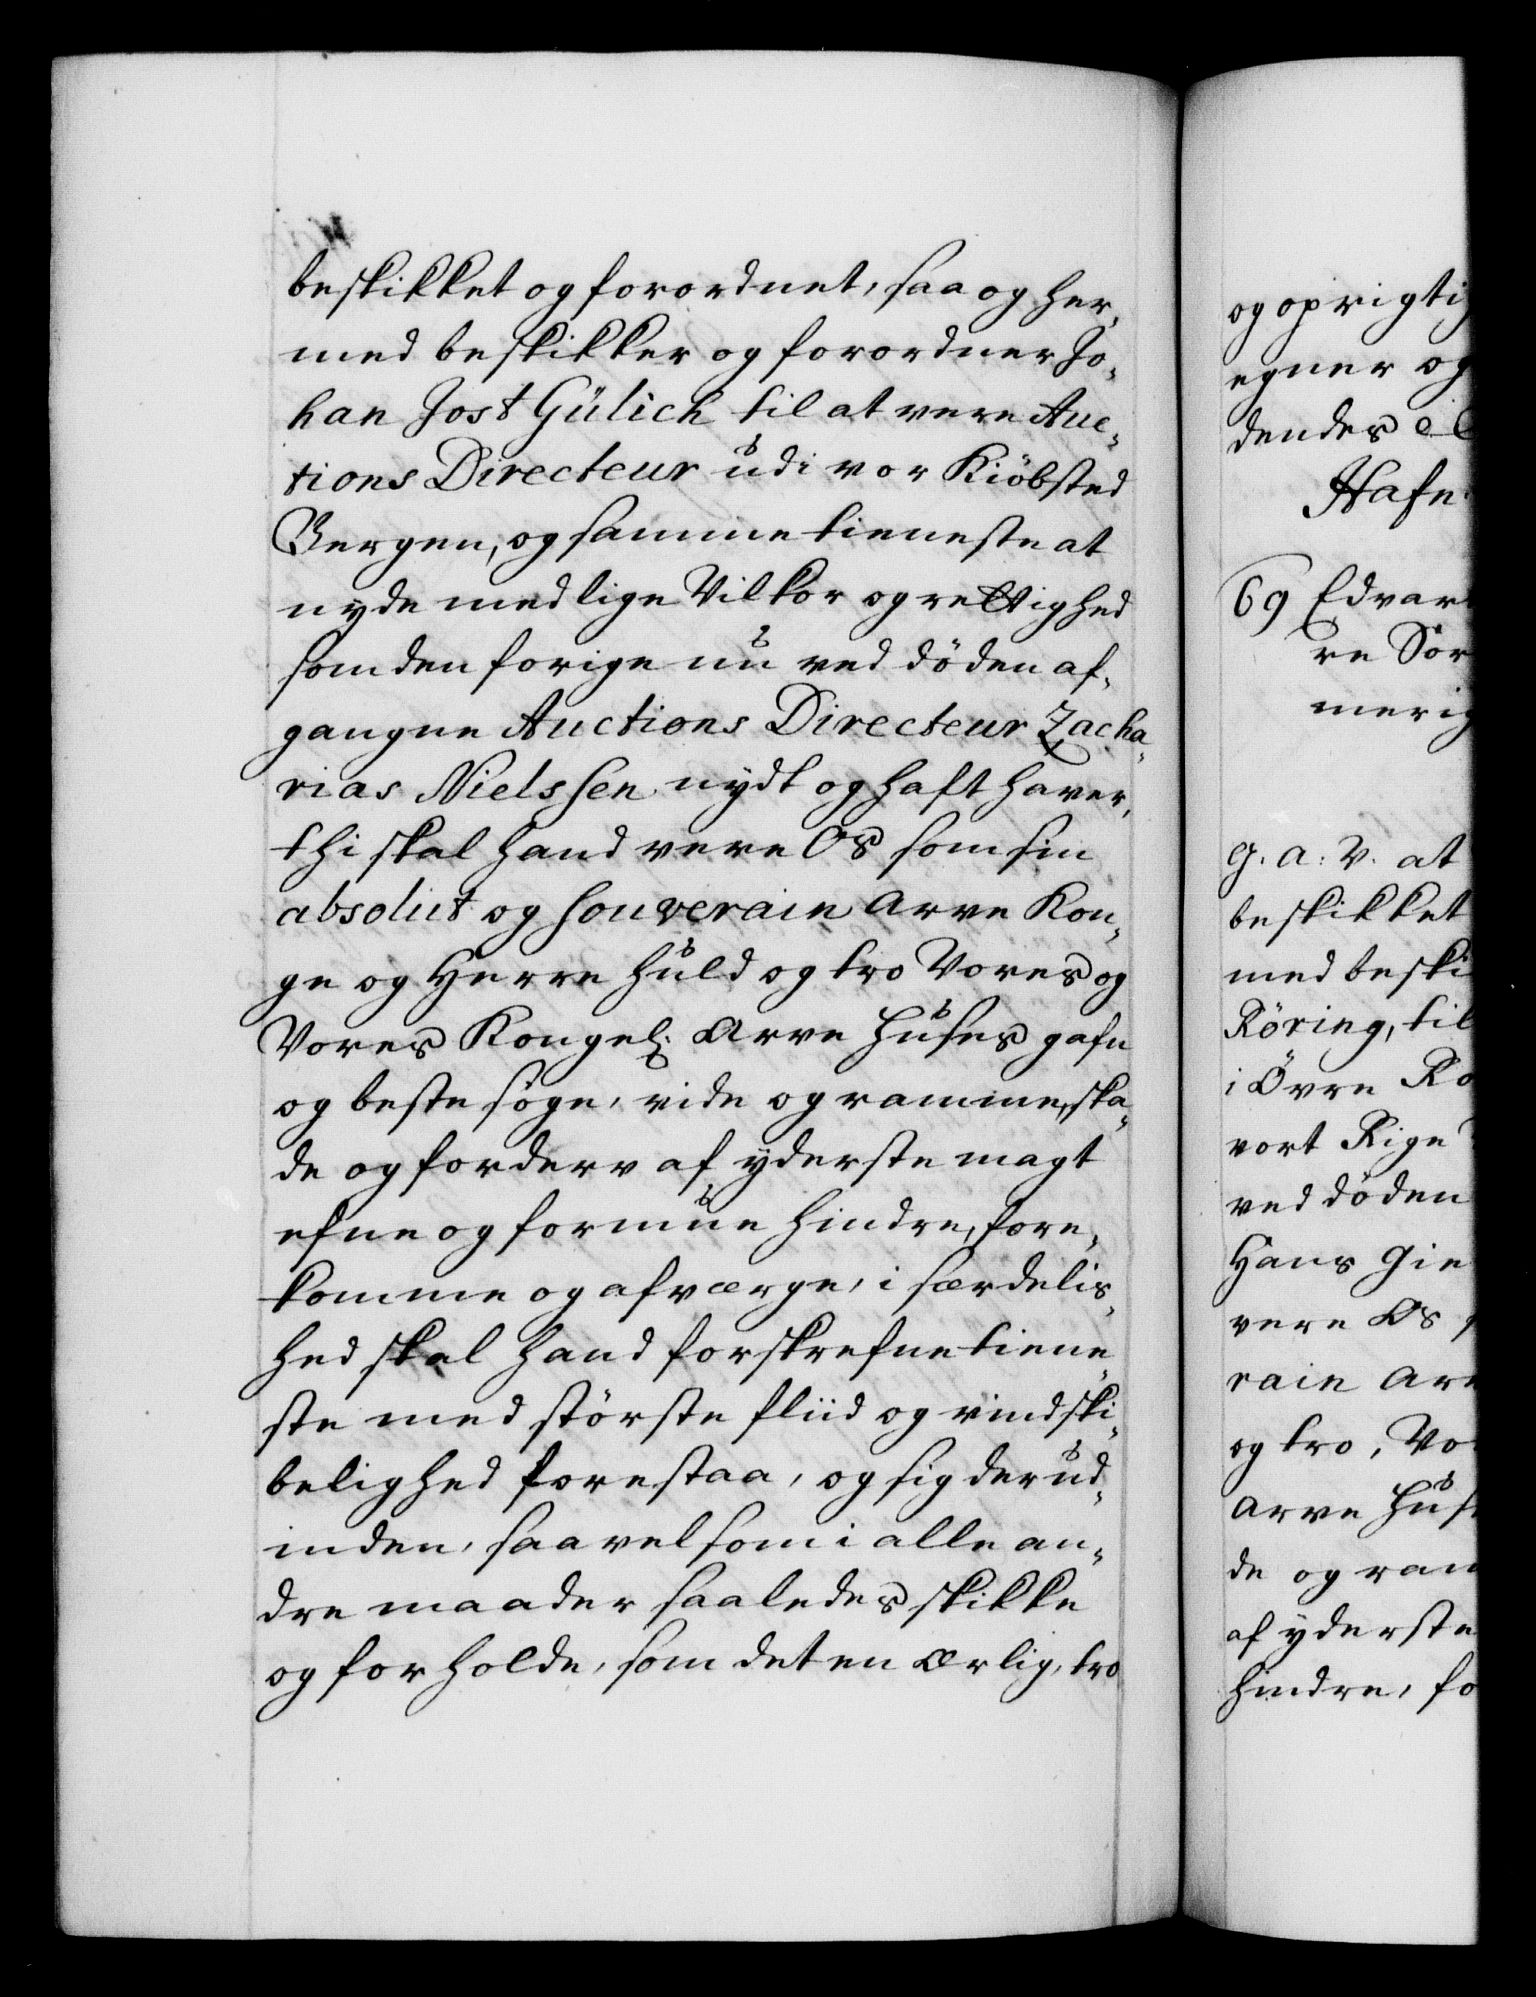 beskikket og forordnet, saa og her,
med beskikker og forordner Jo,
han Jost Gülich til at vere Auc,
tions Directeur udi vor Kiöbsted
Bergen, og samme tieneste at
nyde med lige Vilkor og rettighed
som den forige nu ved döden af,
gangne Auctions Directeur Zacha,
rias Nielssen nydt og haft haver,
thi skal hand vere Os som sin
absolut og souverain Arve Kon,
ge og Herre huld og tro Vores og
Vores Kongel: Arve Huses gafn
og beste söge, vide og ramme, ska,
de og forderv af yderste magt
efne og formue hindre, fore,
komme og afværge, i særdelis,
hed skal hand forskrefne tiene,
ste med störste fliid og vindski,
belighed forestaa, og sig derud,
inden, saavel som i alle an,
dre maader saaledes skikke
og forholde, som det en ærlig, tro
og oprigtig
egner og
dendes
Hafn:
69 Edvar
re Sor
merig
G. A: V. at
beskikket
med beski
Röring, til
i Övre Ro
vort Rige
ved döden
Hans Gie
vere Os
rain Arv
og tro, Vo
Arve Hus
de og ram
af yderste
hindre, fo